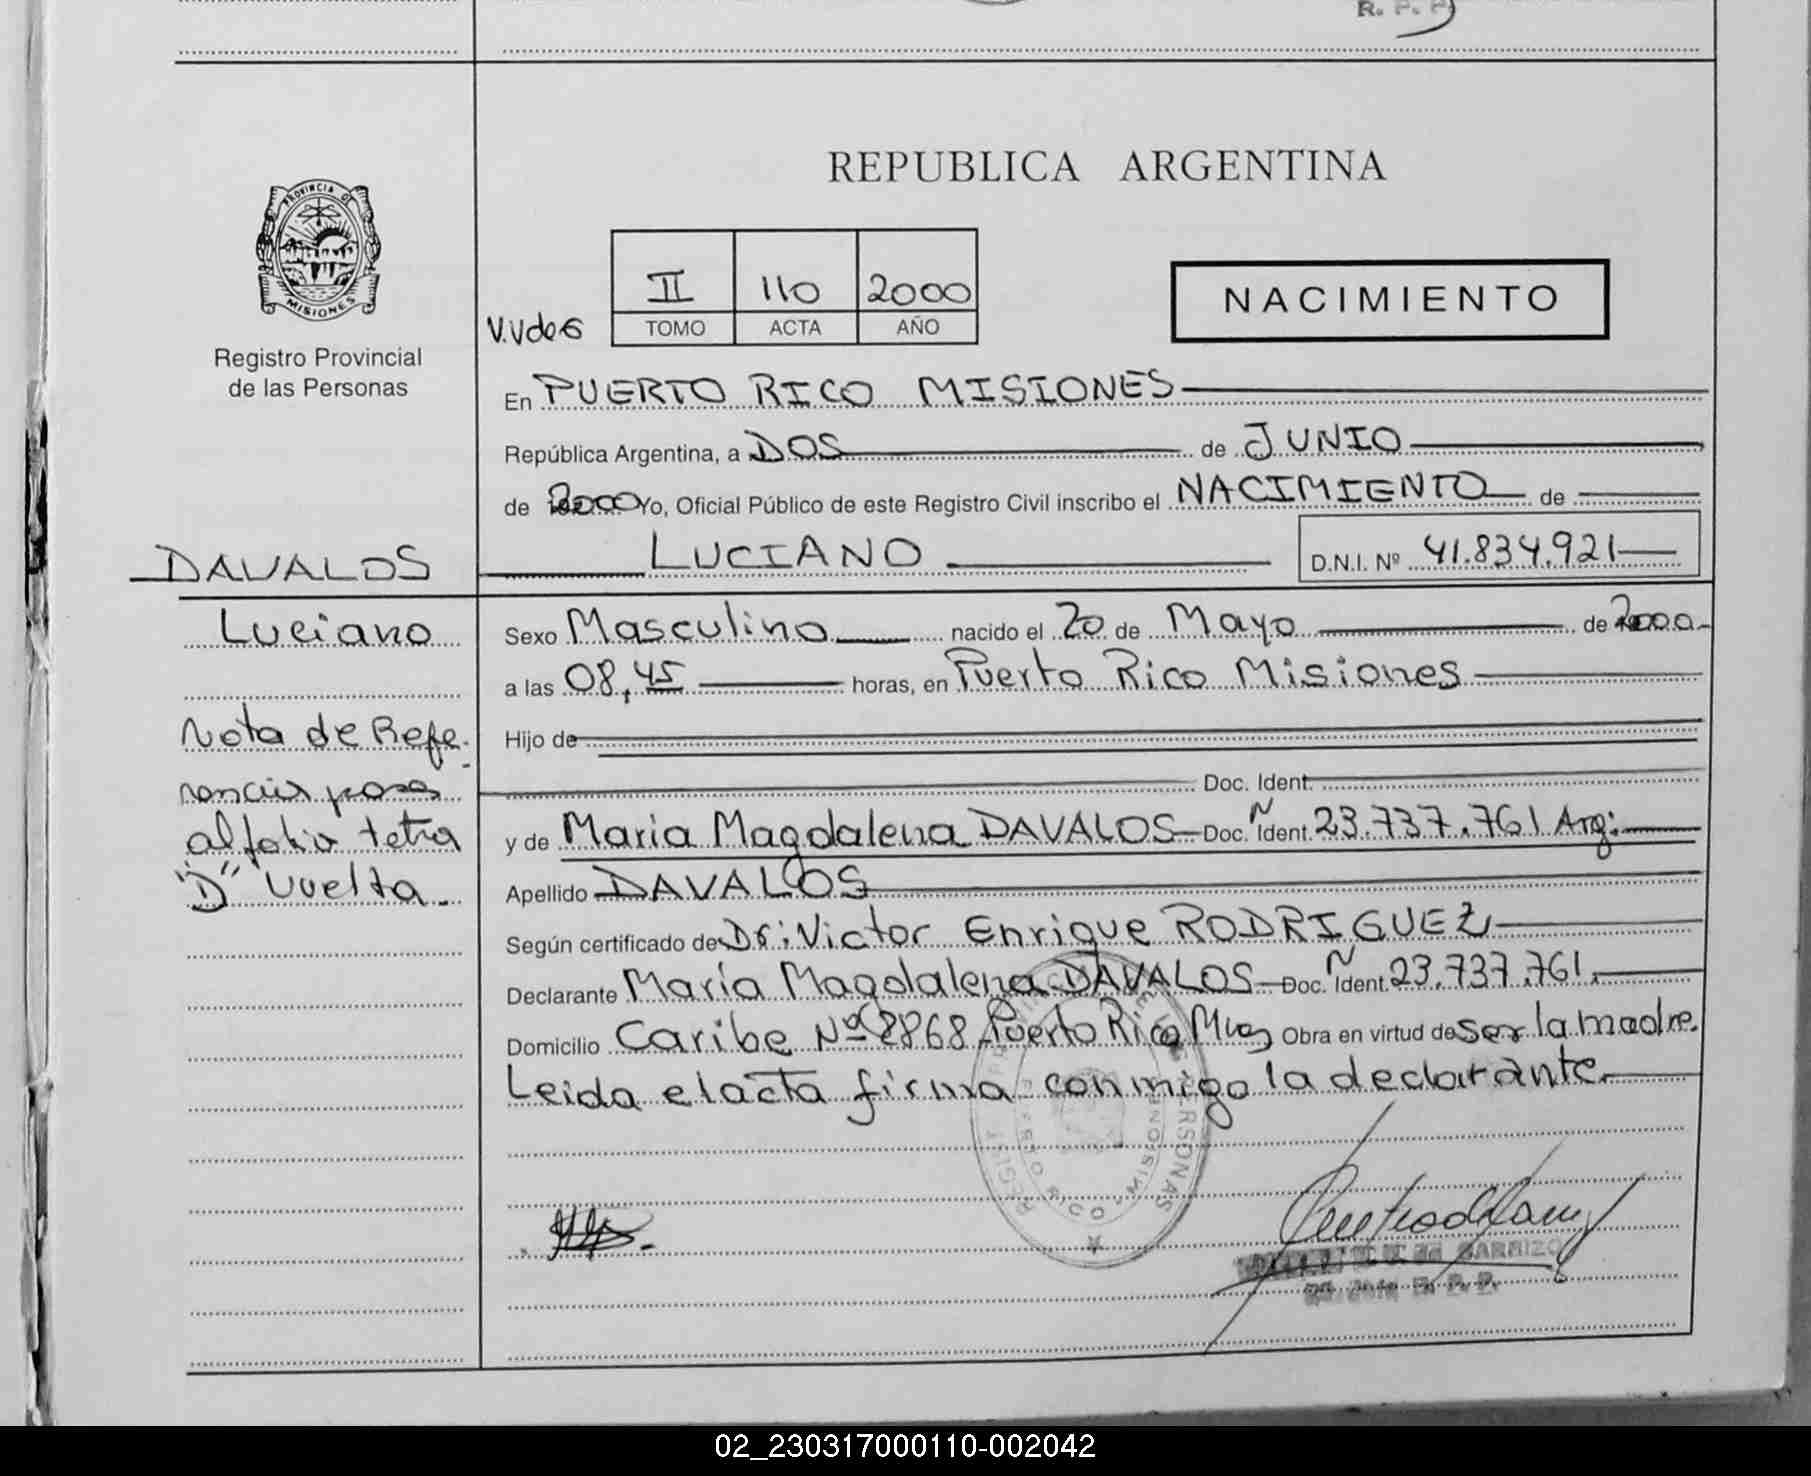 R. P. P.
REPUBLICA ARGENTINA
PROVINCIA DE
MISIONES
Registro Provincial
de las Personas
II 110 2000
TOMO ACTA AÑO
NACIMIENTO
En PUERTO RICO MISIONES
República Argentina, a DOS de JUNIO
de 2000 Yo, Oficial Público de este Registro Civil inscribo el NACIMIENTO de
DAVALOS
LUCIANO D.N.I. Nº 41.834.921
Luciano
Sexo Masculino nacido el 20 de Mayo de 2000
a las 08,45 horas, en Puerto Rico Misiones
Nota de Refe-
Hijo de
Doc. Ident.
al folio letra
y de Maria Magdalena DAVALOS Doc. N Ident. 23.737.761 Arg:
"D" vuelta.
Apellido DAVALOS
Según certificado de Dr: Victor Enrique RODRIGUEZ
Declarante María Magdalena DAVALOS Doc. N Ident. 23.737.761.
Domicilio Caribe Nº 8868 Puerto Rico Mnes Obra en virtud de ser la madre.
Leida el acta firma conmigo la declarante.
PERSONAS
PUERTO RICO - MISIONES
02_230317000110-002042